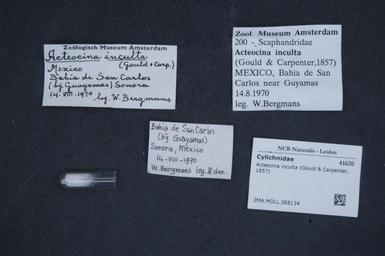 Zoölogisch Museum Amsterdam
Acteocina inculta
(Gould & Carp.)
Mexico
Bahia de San Carlos
(bij Guaymas) Sonora
14-VIII-1970 leg. W. Bergmans
Zool. Museum Amsterdam
200 - Scaphandridae
Acteocina inculta
(Gould & Carpenter,1857)
MEXICO, Bahia de San
Carlos near Guyamas
14.8.1970
leg. W.Bergmans
Bahia de San Carlos
(bij Guaymas)
Sonora, Mexico
14-VIII-1970
W. Bergmans leg. & don.
NCB Naturalis - Leiden
Cylichnidae 41620
Acteocina inculta (Gould & Carpenter,
1857)
ZMA.MOLL.368134